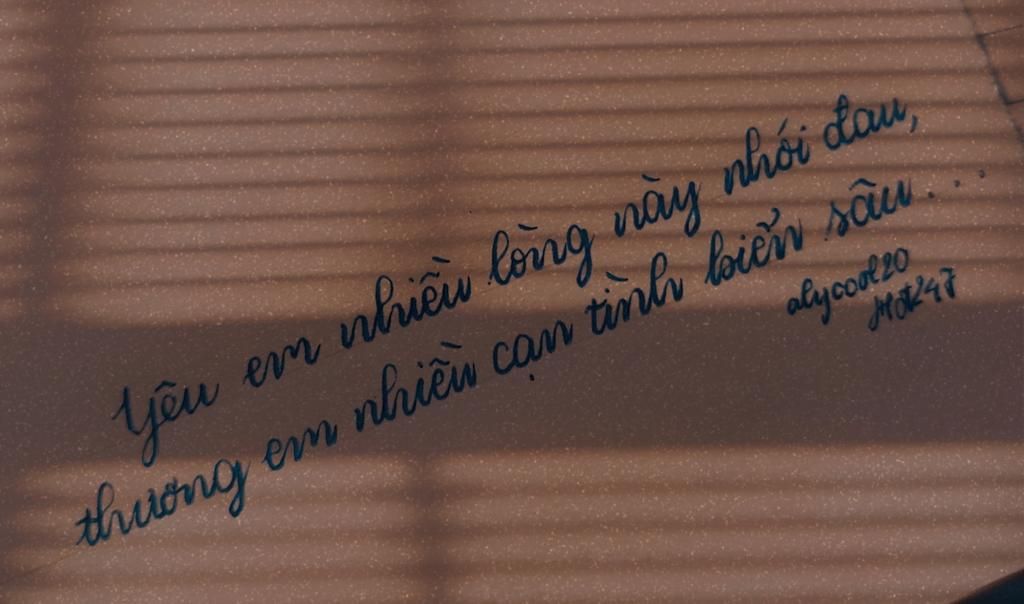 Yêu em nhiều lòng này nhói đau,
thương em nhiều cạn tình biển sâu...
alycool20